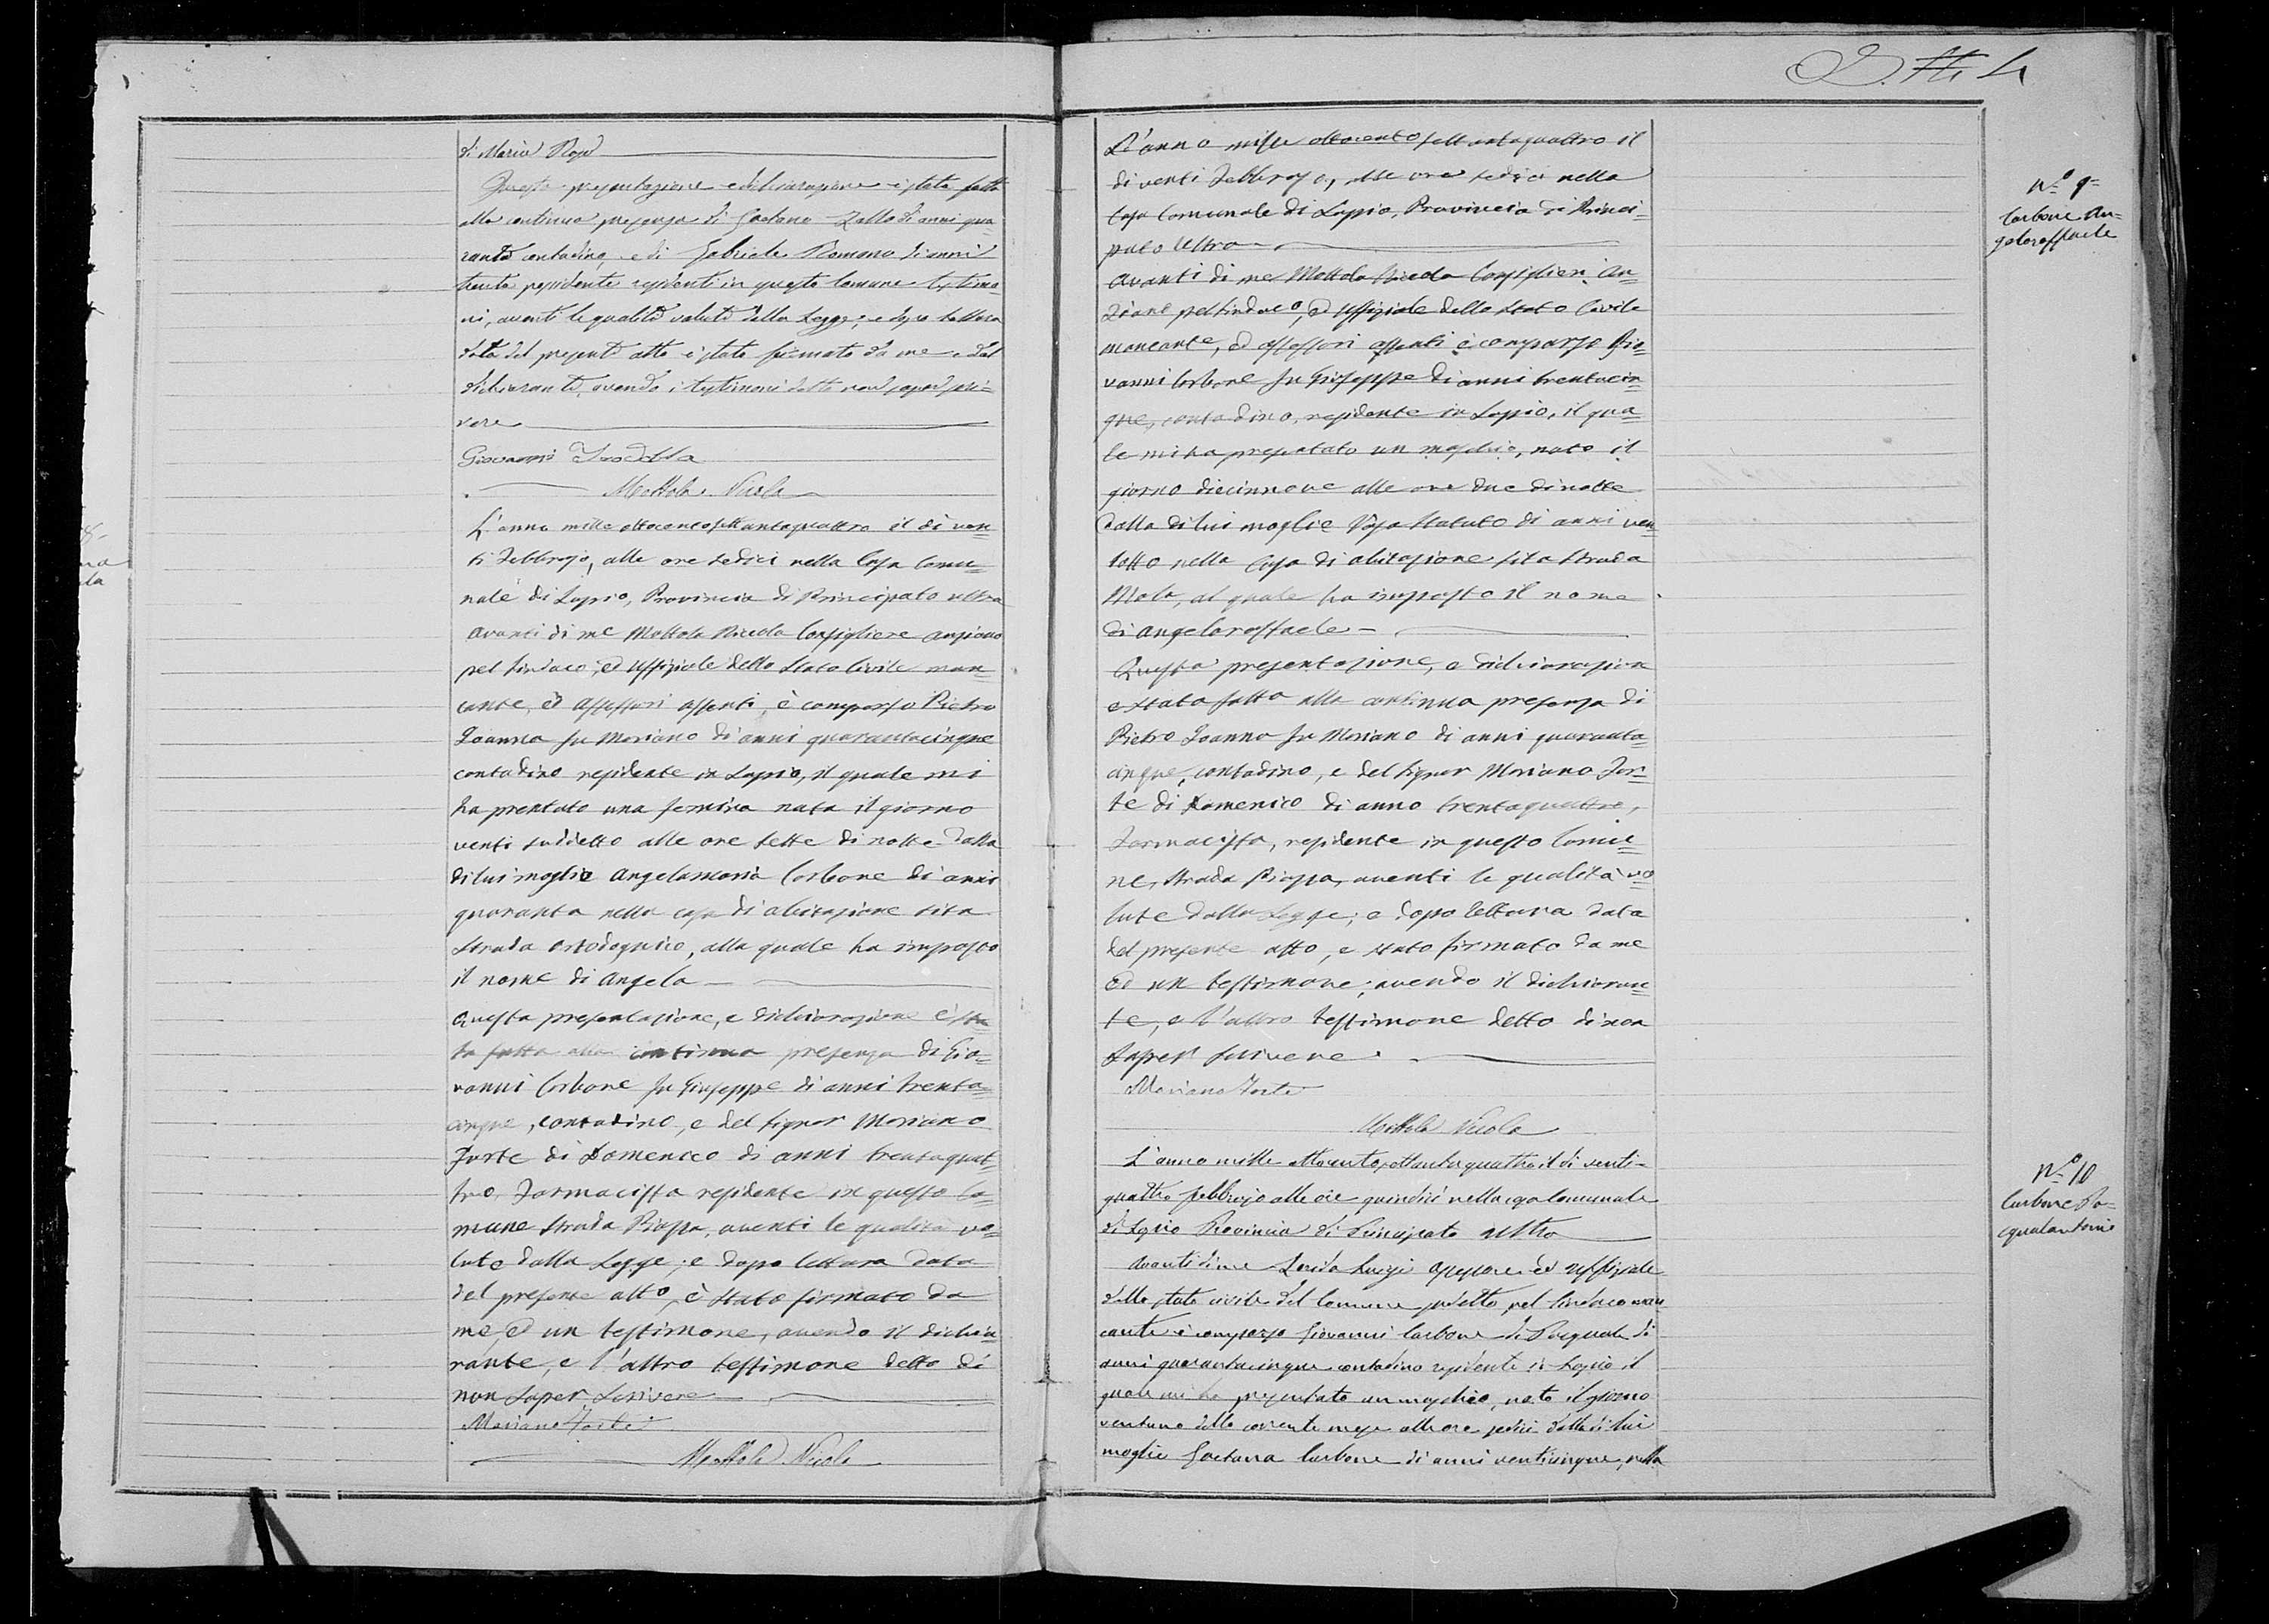 di Maria Rosa
Questa presentazione e dichiarazione è stata fatta
alla continua presenza di Gaetano Zallo di anni qua=
ranta contadino, e di Gabriele Romano di anni
trenta possidente residenti in questo Comune testimo=
ni, aventi le qualità volute dalla Legge; e dopo lettura
data del presente atto è stato firmato da me e dal
dichiarante, avendo i testimoni detto non saper scri=
vere
Giovanni
Mottola Nicola
L'anno mille ottocentosettantaquattro il dì ven=
ti Febbrajo, alle ore sedici nella Casa Comu=
nale di Lapio, Provincia di Principato ultra
Avanti di me Mottola Nicola Consigliere anziano
pel Sindaco, ed Uffiziale dello Stato Civile man=
cante, ed Assessori assenti, è comparso Pietro
Ioanna fu Mariano di anni quarantacinque
contadino residente in Lapio, il quale mi
ha prentato una femina nata il giorno
venti suddetto alle ore sette di notte dalla
di lui moglie Angelamaria Carbone di anni
quaranta nella casa di abitazione sita
Strada, alla quale ha imposto
il nome di Angela
Questa presentazione, e dichiarazione è sta=
ta fatta alla continua presenza di Gio=
vanni Carbone fu Giuseppe di anni trenta=
cinque, contadino, e del Signor Mariano
Forte di Domenico di anni trentaquat=
tro, Farmacista residente in questo Co=
mune Strada Piazza, aventi le qualità vo=
lute dalla Legge; e dopo lettura data
del presente atto, è stato firmato da
me, ed un testimone, avendo il dichia=
rante, e l'altro testimone detto di
non saper scrivere
Mariano Forte
Mottola Nicola
L'anno mille ottocento settantaquattro il
dì venti Febbrajo, alle ore sedici nella
Casa Comunale di Lapio, Provincia di Princi=
pato Ultra
Avanti di me Mottola Nicola Consigliere An=
ziano pel Sindaco, ed Uffiziale dello Stato Civile
mancante, ed assessori assenti è comparso Gio=
vanni Carbone fu Giuseppe di anni trentacin=
que, contadino, residente in Lapio, il qua=
le mi ha presetato un maschio, nato il
giorno diecinnove alle ore due di notte
dalla di lui moglie Rosa Statuto di anni ven=
totto nella Casa di abitazione sita Strada
Mola, al quale ha imposto il nome
di Angeloraffaele
Questa presentazione, e dichiarazione
e stata fatta alla continua presenza di
Pietro Ioanna fu Mariano di anni quaranta=
cinque, contadino, e del Signor Mariano For=
te di Domenico di anno trentaquattro,
Farmacista, residente in questo Comu=
ne, Strada Piazza, aventi le qualità vo=
lute dalla Legge; e dopo lettura data
del presente atto, e stato firmato da me
ed un testimone; avendo il dichiaran=
te, e l'altro testimone detto di non
saper scrivere
Mariano Forte
Mottola Nicola
L'anno mille ottocentosettantaquattro il dì venti=
quattro febbrajo alle ore quindici nella casa Comunale
di Lapio Provincia di Principato ultra
Avanti di me Luigi assessore ed uffiziale
dello stato civile del Comune sudetto, pel Sindaco man
cante è comparso Giovanni Carbone di Pasquale di
anni quarantacinque contadino residente in Lapio il
quale mi ha presentato un maschio, nato il giorno
ventuno dello corrente mese alle ore sedici dalla di lui
moglie Gaetana Carbone di anni venticinque, nella
No 9=
Carbone An=
geloraffaele
No 10
Carbone Pa=
squalantonio